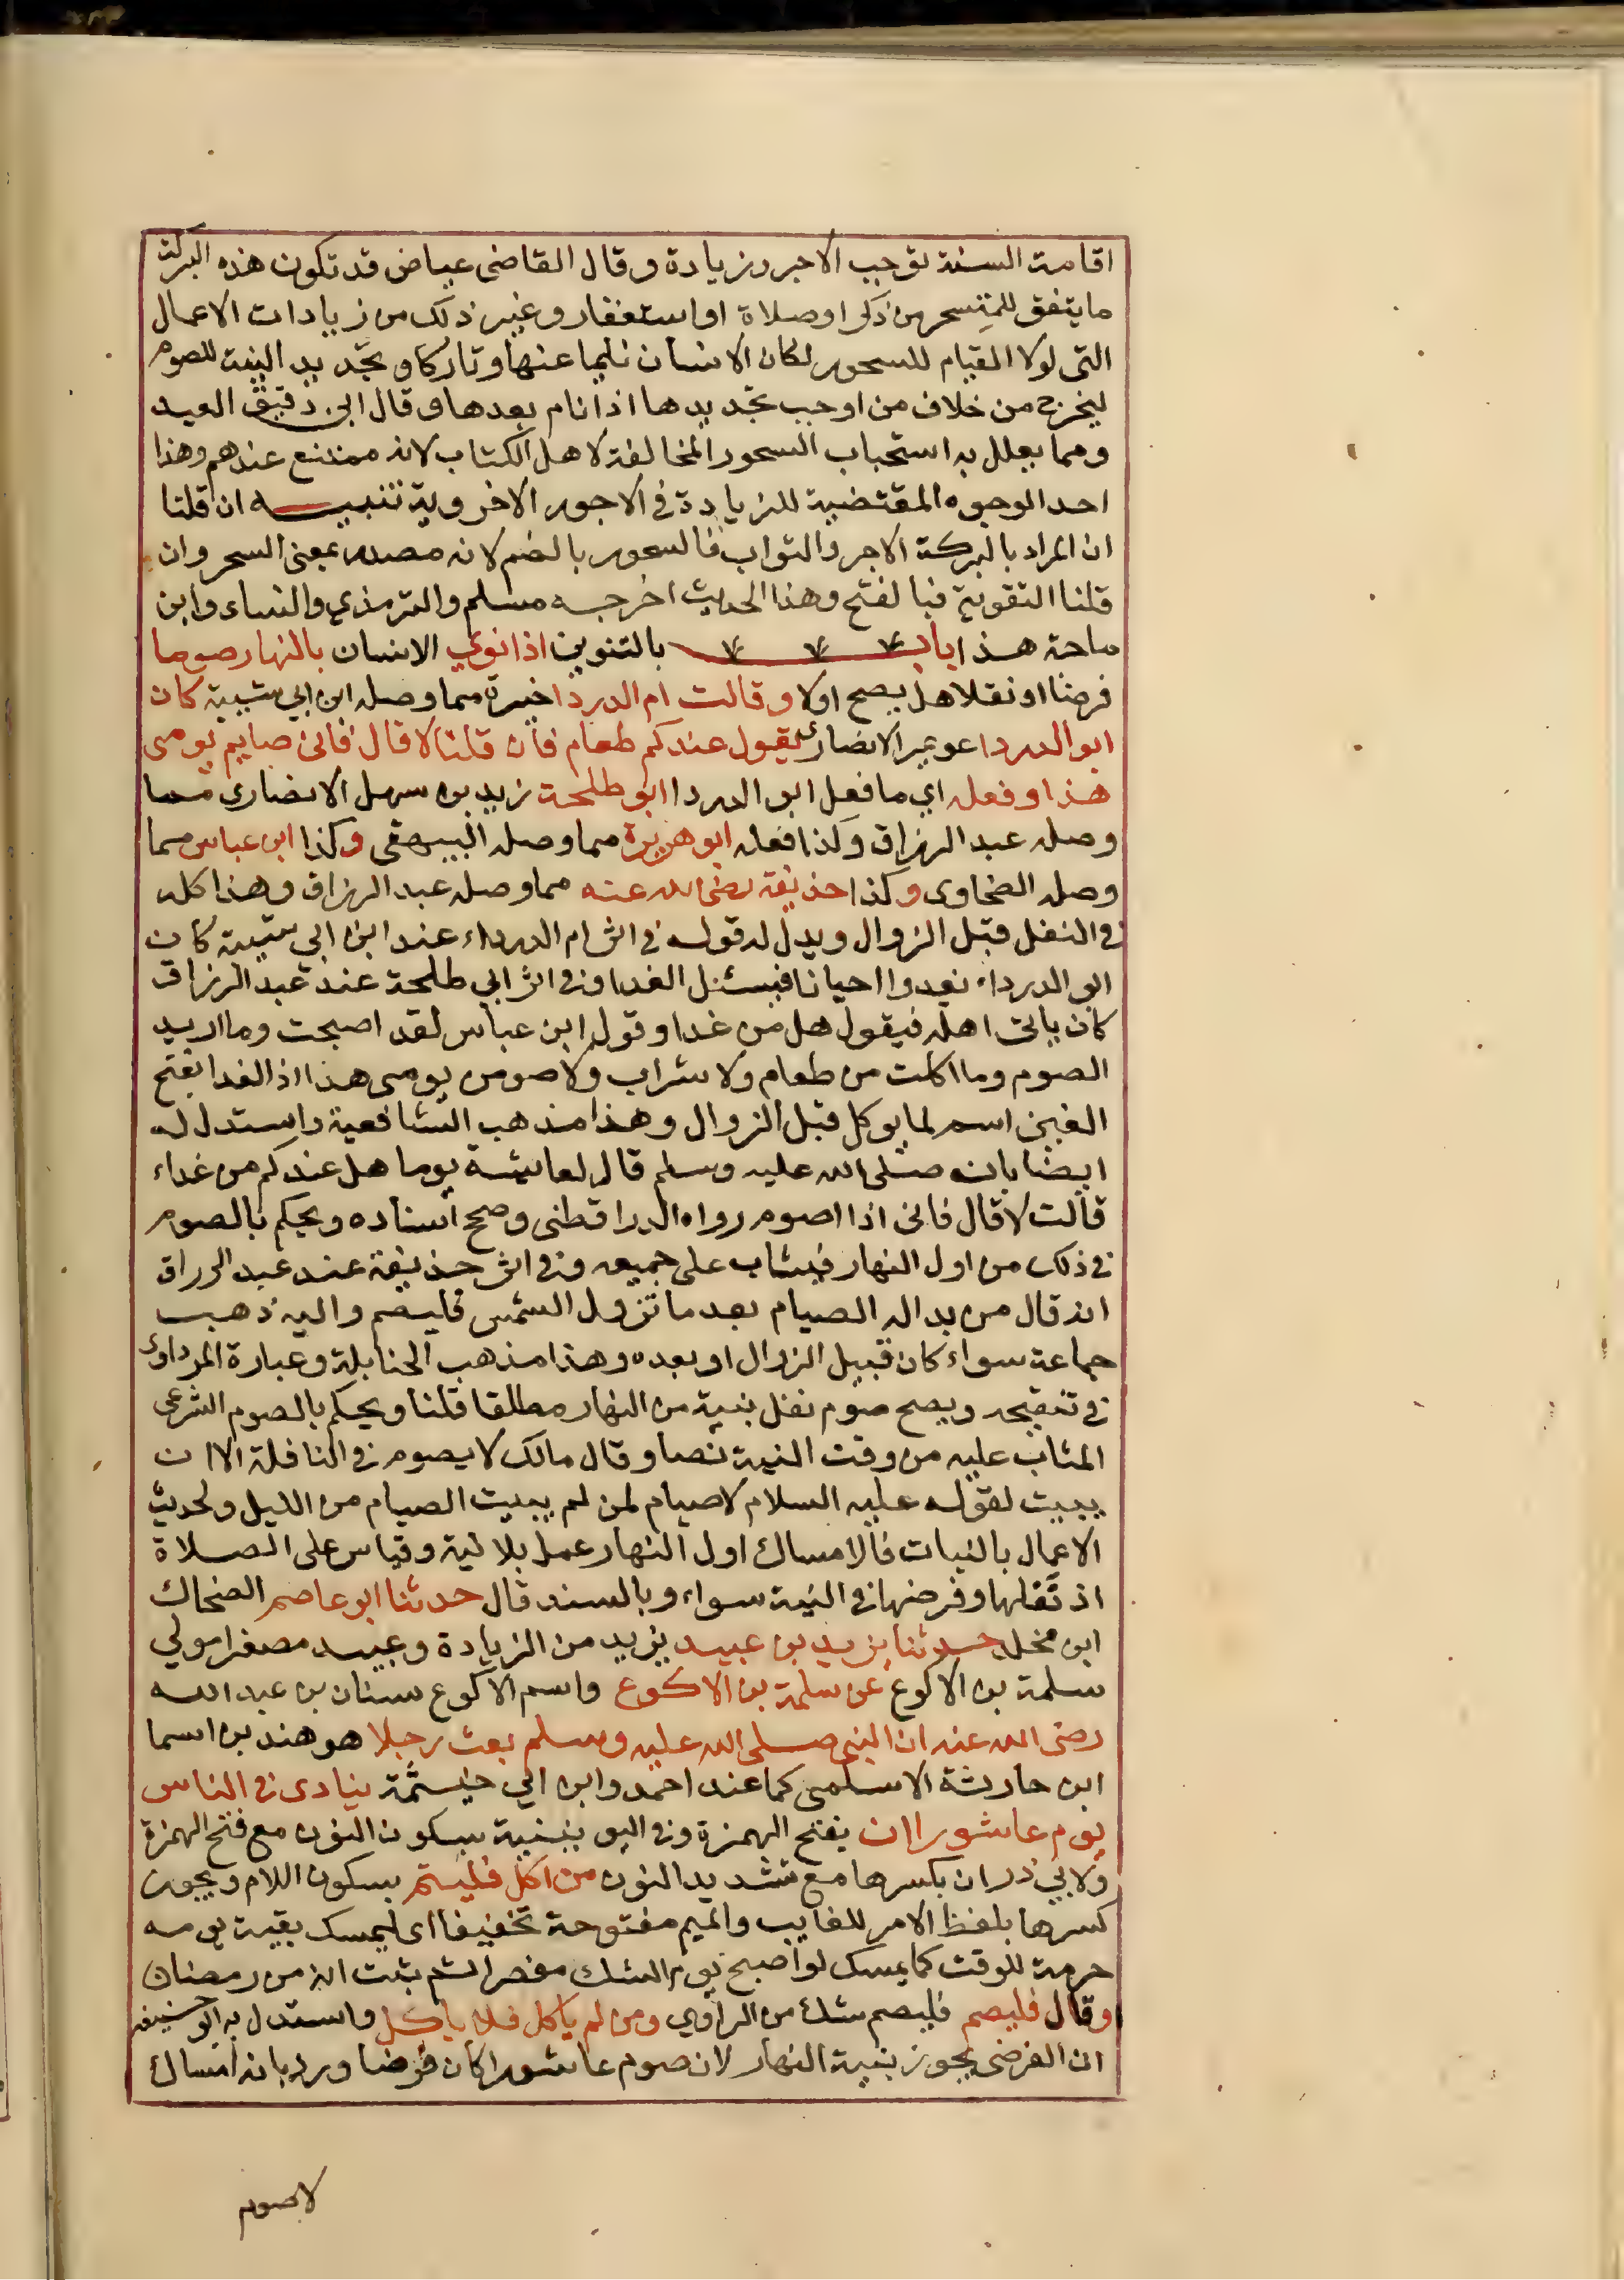 اقامة السنة توجب الاجر وزيادة وقال القاضى عياض قد تكون هذه البركة
ما يتفق للمتسحر من ذكر او صلاة او استغفار وغير ذلك من زيادات الاعمال
التى لولا القيام للسحور لكان الانسان نايما عنها وتاركا وتجديد النية للصوم
ليخرج من خلاف من اوجب تجديدها اذا نام بعدها وقال ابن دقيق العيد
ومما يعلل به استحباب السحور المخالفة لاهل الكتاب لانه ممتنع عندهم وهذا
احد الوجوه المقتضية للزيادة في الاجور الاخروية تنبيه ان قلنا
ان المراد بالبركة الاجر والثواب فالسحور بالضم لانه مصدر بمعنى السحر وان
قلنا التقوية فبالفتح وهذا الحديث اخرجه مسلم والترمذي والنساء وابن
ماجة هذا باب بالتنوين اذا نوي الانسان بالنهار صوما
فرضا او نفلا هل يصح اولا وقالت ام الدردا خيرة مما وصله ابن ابي شيبة كان
ابو الدردا عويمر الانصارى يقول عندكم طعام فان قلنا لا قال فانى صايم يومى
هذا وفعله اي ما فعل ابو الدردا ابو طلحة زيد بن سهل الانصاري مما
وصله عبد الرزاق وكذا فعله ابو هريرة مما وصله البيهقى وكذا ابن عباس مما
وصله الضحاوى وكذا حذيفة رضى الله عنه مما وصله عبد الرزاق وهذا كله
في النفل قبل الزوال ويدل له قوله في اثر ام الدرداء عند ابن ابي شيبة كان
ابو الدرداء يغدوا احيانا فيسئل الغدا وفى اثر ابي طلحة عند عبد الرزاق
كان ياتى اهله فيقول هل من غدا وقول ابن عباس لقد اصبحت وما اريد
الصوم وما اكلت من طعام ولا شراب ولاصومن يومى هذا اذ الغدا بفتح
الغين اسم لما يوكل قبل الزوال وهذا مذهب الشافعية واستدل له
ايضا بانه صلى الله عليه وسلم قال لعايشة يوما هل عندكم من غداء
قالت لا قال فانى اذا اصوم رواه الدراقطنى وصحح اسناده ويحكم بالصوم
في ذلك من اول النهار فيثاب على جميعه وفى اثر حذيفة عند عبد الرراق
انه قال من بدا له الصيام بعد ما تزول الشمس فليصم واليه ذهب
جماعة سواء كان قبل الزوال او بعده وهذا مذهب الحنابلة وعبارة المرداوى
في تنقيحه ويصح صوم نفل بنية من النهار مطلقا قلنا ويحكم بالصوم الشرعى
المثاب عليه من وقت النية نصا وقال مالك لا يصوم في النافلة الا ان
يبيت لقوله عليه السلام لا صيام لمن لم يبيت الصيام من الليل ولحديث
الاعمال بالنيات فالامساك اول النهار عمل بلا نية وقياس على الصلاة
اذ نفلها وفرضها في النية سواء وبالسند قال حدثنا ابو عاصم الضحاك
ابن مخلد حدثنا يزيد بن عبيد يزيد من الزيادة وعبيد مصغرا مولي
سلمة بن الاكوع عن سلمة بن الاكوع واسم الاكوع سنان بن عبد الله
رضى الله عنه ان النبى صلى الله عليه وسلم بعث رجلا هو هند بن اسما
ابن حارثة الاسلمى كما عند احمد وابن ابي خيثمة ينادى في الناس
يوم عاشورا ان بفتح الهمزة وفى اليو نينية بسكون النون مع فتح الهمزة
ولابي ذر ان بكسرها مع تشديد النون من اكل فليتم بسكون اللام ويجوز
كسرها بلفظ الامر للغايب والميم مفتوحة تخفيفا اى ليمسك بقية يومه
حرمة للوقت كما يمسك لو اصبح يوم الشك مفطرا ثم ثبت انه من رمضان
وقال فليصم فليصم شك من الراوي ومن لم ياكل فلا ياكل واستدل به ابو حنيفة
ان الفرضى يجوز بنية النهار لان صوم عاشورا كان فرضا ورد بانه امساك
لا صوم